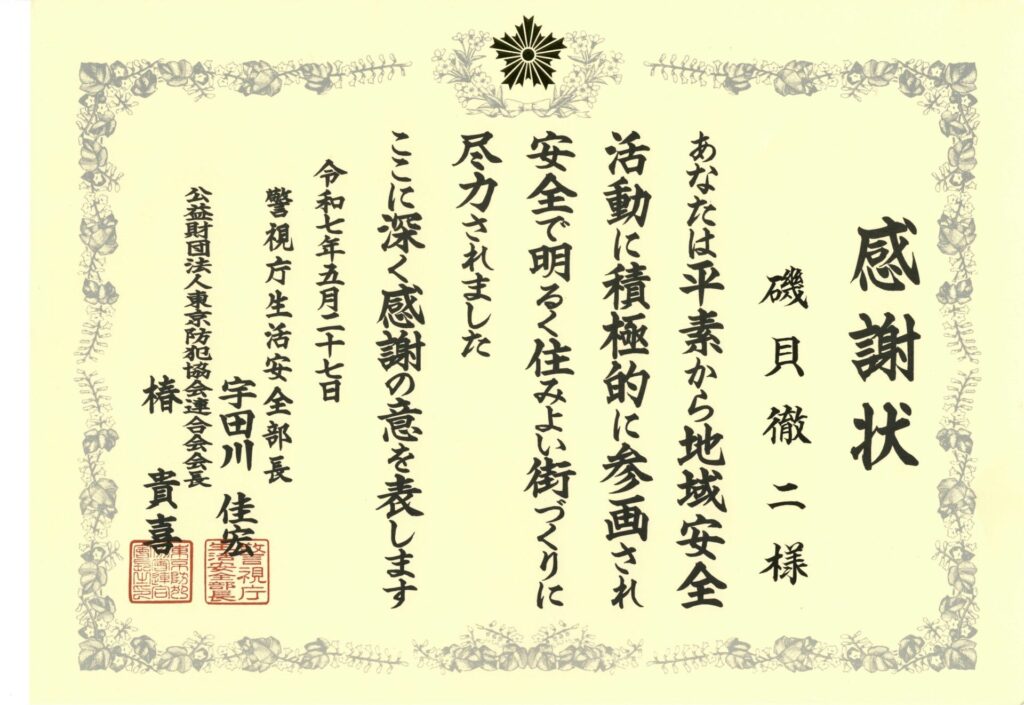 感謝状
磯貝徹二様
あなたは平素から地域安全
活動に積極的に参画され
安全で明るく住みよい街づくりに
尽力されました
ここに深く感謝の意を表します
令和七年五月二十七日
警視庁生活安全部長
宇田川佳宏
警視庁
生活安全部長
公益財団法人東京防犯協会連合会会長
椿貴喜